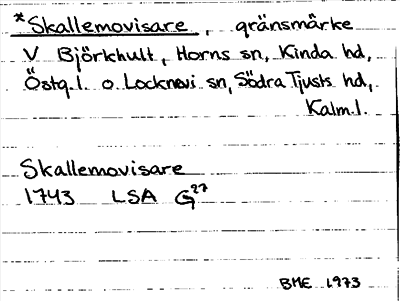 *Skallemovisare, gränsmärke
V Björkhult, Horns sn, Kinda hd,
Östg.l. o Locknevi sn, Södra Tjusts hd,
Kalm.l.
Skallemovisare
1743 LSA G27
BME 1973